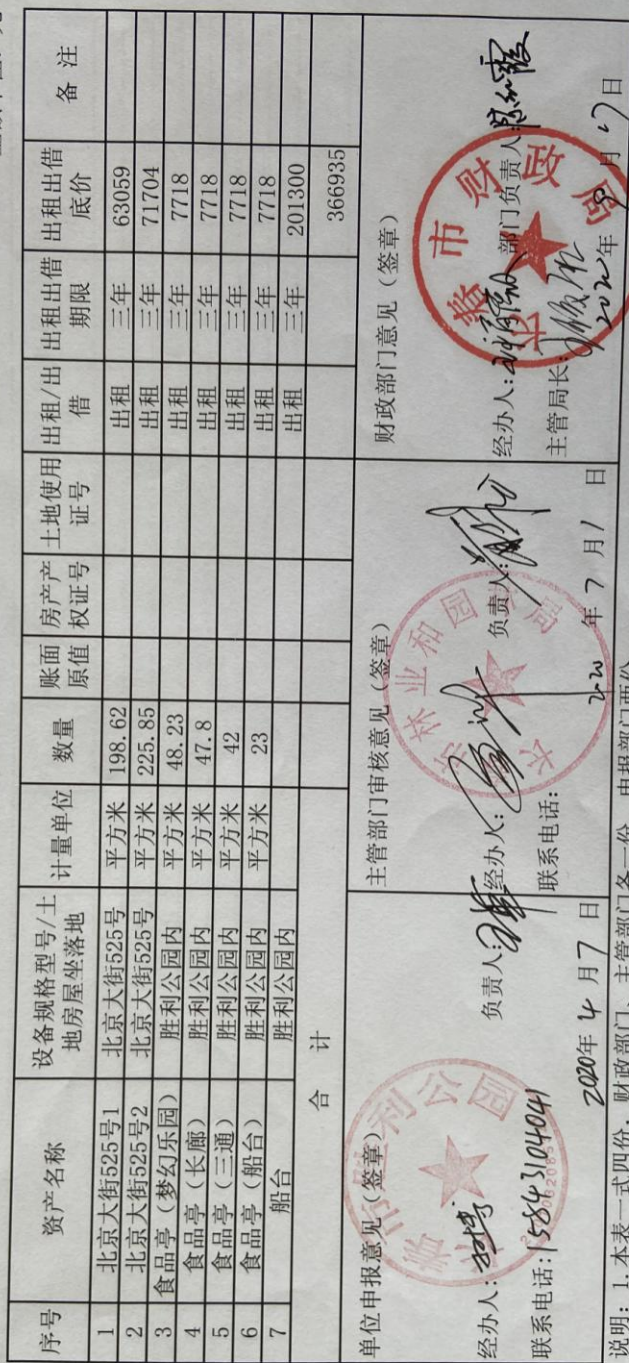 序号 资产名称 设备规格型号/土地房屋坐落地 计量单位 数量 账面原值 房产产权证号 土地使用证号 出租/出借 出租出借期限 出租出借底价 备注
1 北京大街525号1 北京大街525号 平方米 198.62 出租 三年 63059
2 北京大街525号2 北京大街525号 平方米 225.85 出租 三年 71704
3 食品亭（梦幻乐园） 胜利公园内 平方米 48.23 出租 三年 7718
4 食品亭（长廊） 胜利公园内 平方米 47.8 出租 三年 7718
5 食品亭（三通） 胜利公园内 平方米 42 出租 三年 7718
6 食品亭（船台） 胜利公园内 平方米 23 出租 三年 7718
7 船台 胜利公园内 出租 三年 201300
合计 366935
单位申报意见（签章）
经办人： 负责人：
联系电话：15843104041
2020年4月7日
主管部门审核意见（签章）
经办人： 负责人：
联系电话：
年7月1日
市林业和园林局
财政部门意见（签章）
经办人： 部门负责人：
主管局长：
年 月17日
春市财政局
说明：1.本表一式四份，财政部门、主管部门各一份，申报部门两份